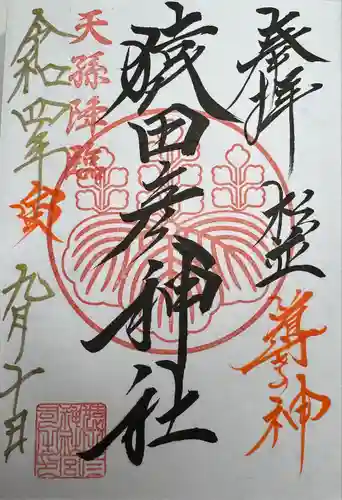 奉拝
導き神
猿田彦神社
天孫降臨
令和四年
寅
九月十日